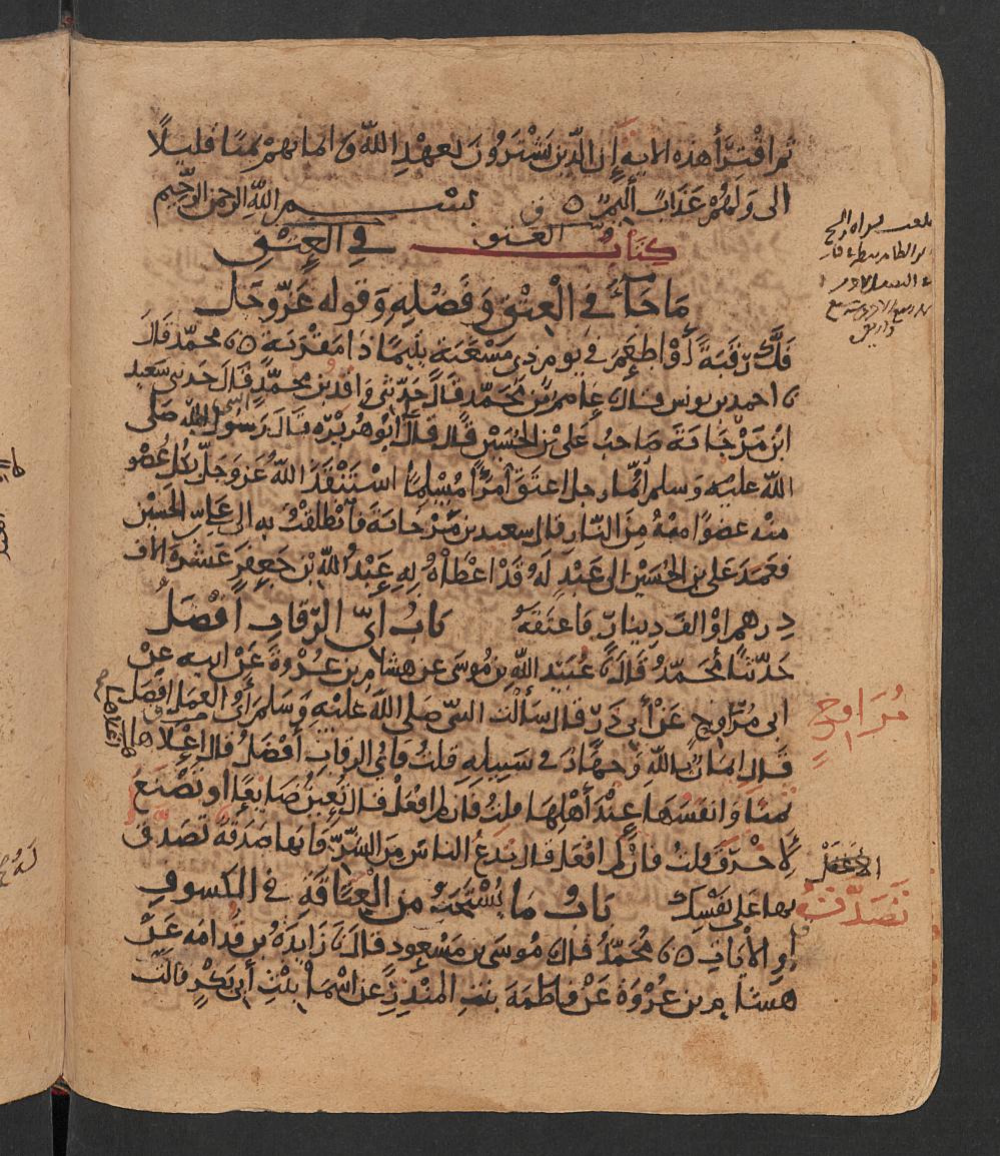 ثم اقترأ هذه الاية إن الذين يشترون بعهد الله وايمانهم ثمنا قليلا
الى ولهم عذاب أليم ه بسم الله الرحمن الرحيم
كتاب العتق في العتق
ما جاء في العتق وفضله وقوله عز وجل
فك رقبة أو اطعم في يوم ذي مسغبة يتيما ذا مقربة ه محمد قال
احمد بن يونس قال عاصم بن محمد قال حدثني واقد بن محمد قال حدثني سعيد
ابن مرجانة صاحب علي بن الحسين قال قال أبو هريرة قال رسول الله صلى
الله عليه وسلم أيما رجل اعتق امرأ مسلما استنقذ الله عز وجل بكل عضو
منه عضوا منه من النار قال سعيد بن مرجانة فانطلقت به الى علي بن الحسين
فعمد علي بن الحسين الى عبد له قد اعطاه به عبد الله بن جعفر عشرة الاف
درهم او الف دينار فاعتقه باب اي الرقاب افضل
حدثنا محمد قال عبيد الله بن موسى عن هشام بن عروة عن ابيه عن
ابي مراوح عن أبي ذر قال سألت النبي صلى الله عليه وسلم أي العمل افضل
قال ايمان بالله وجهاد في سبيله قلت فاي الرقاب أفضل قال اعلاها
ثمنا وانفسها عند أهلها قلت فان لم افعل قال تعين ضايعا أو تصنع
لأخرق قلت فان لم افعل قال تدع الناس من الشر فانها صدقة تصدق
بها على نفسك باب ما يستحب من العتاقة في الكسوف
أو الآيات ه محمد قال موسى بن مسعود قال نا زايدة بن قدامه عن
هشام بن عروة عن فاطمة بنت المنذر عن اسما بنت أبي بكر قالت
مراوح
تصدقت